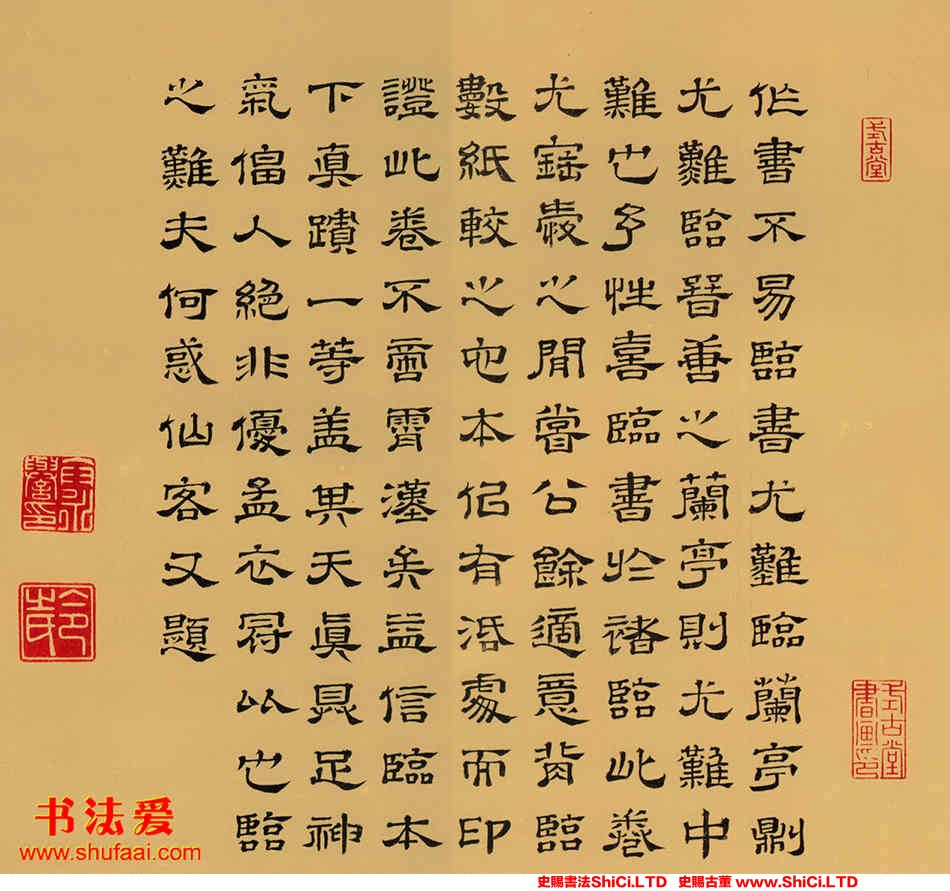 作書不易臨書尤難臨蘭亭則
尤難臨晉善之蘭亭則尤難中
難也予性喜臨書於褚臨此卷
尤愛之間嘗公餘適意背臨
數紙較之他本似有活處而印
證此卷不啻霄漢矣益信臨本
下真蹟一等蓋其天真具足神
氣偪人絕非優孟衣冠以也臨
之難夫何惑仙客又題
书法爱
www.shufaai.com
史賜書法ShiCi.LTD 史賜古董 www.ShiCi.LTD